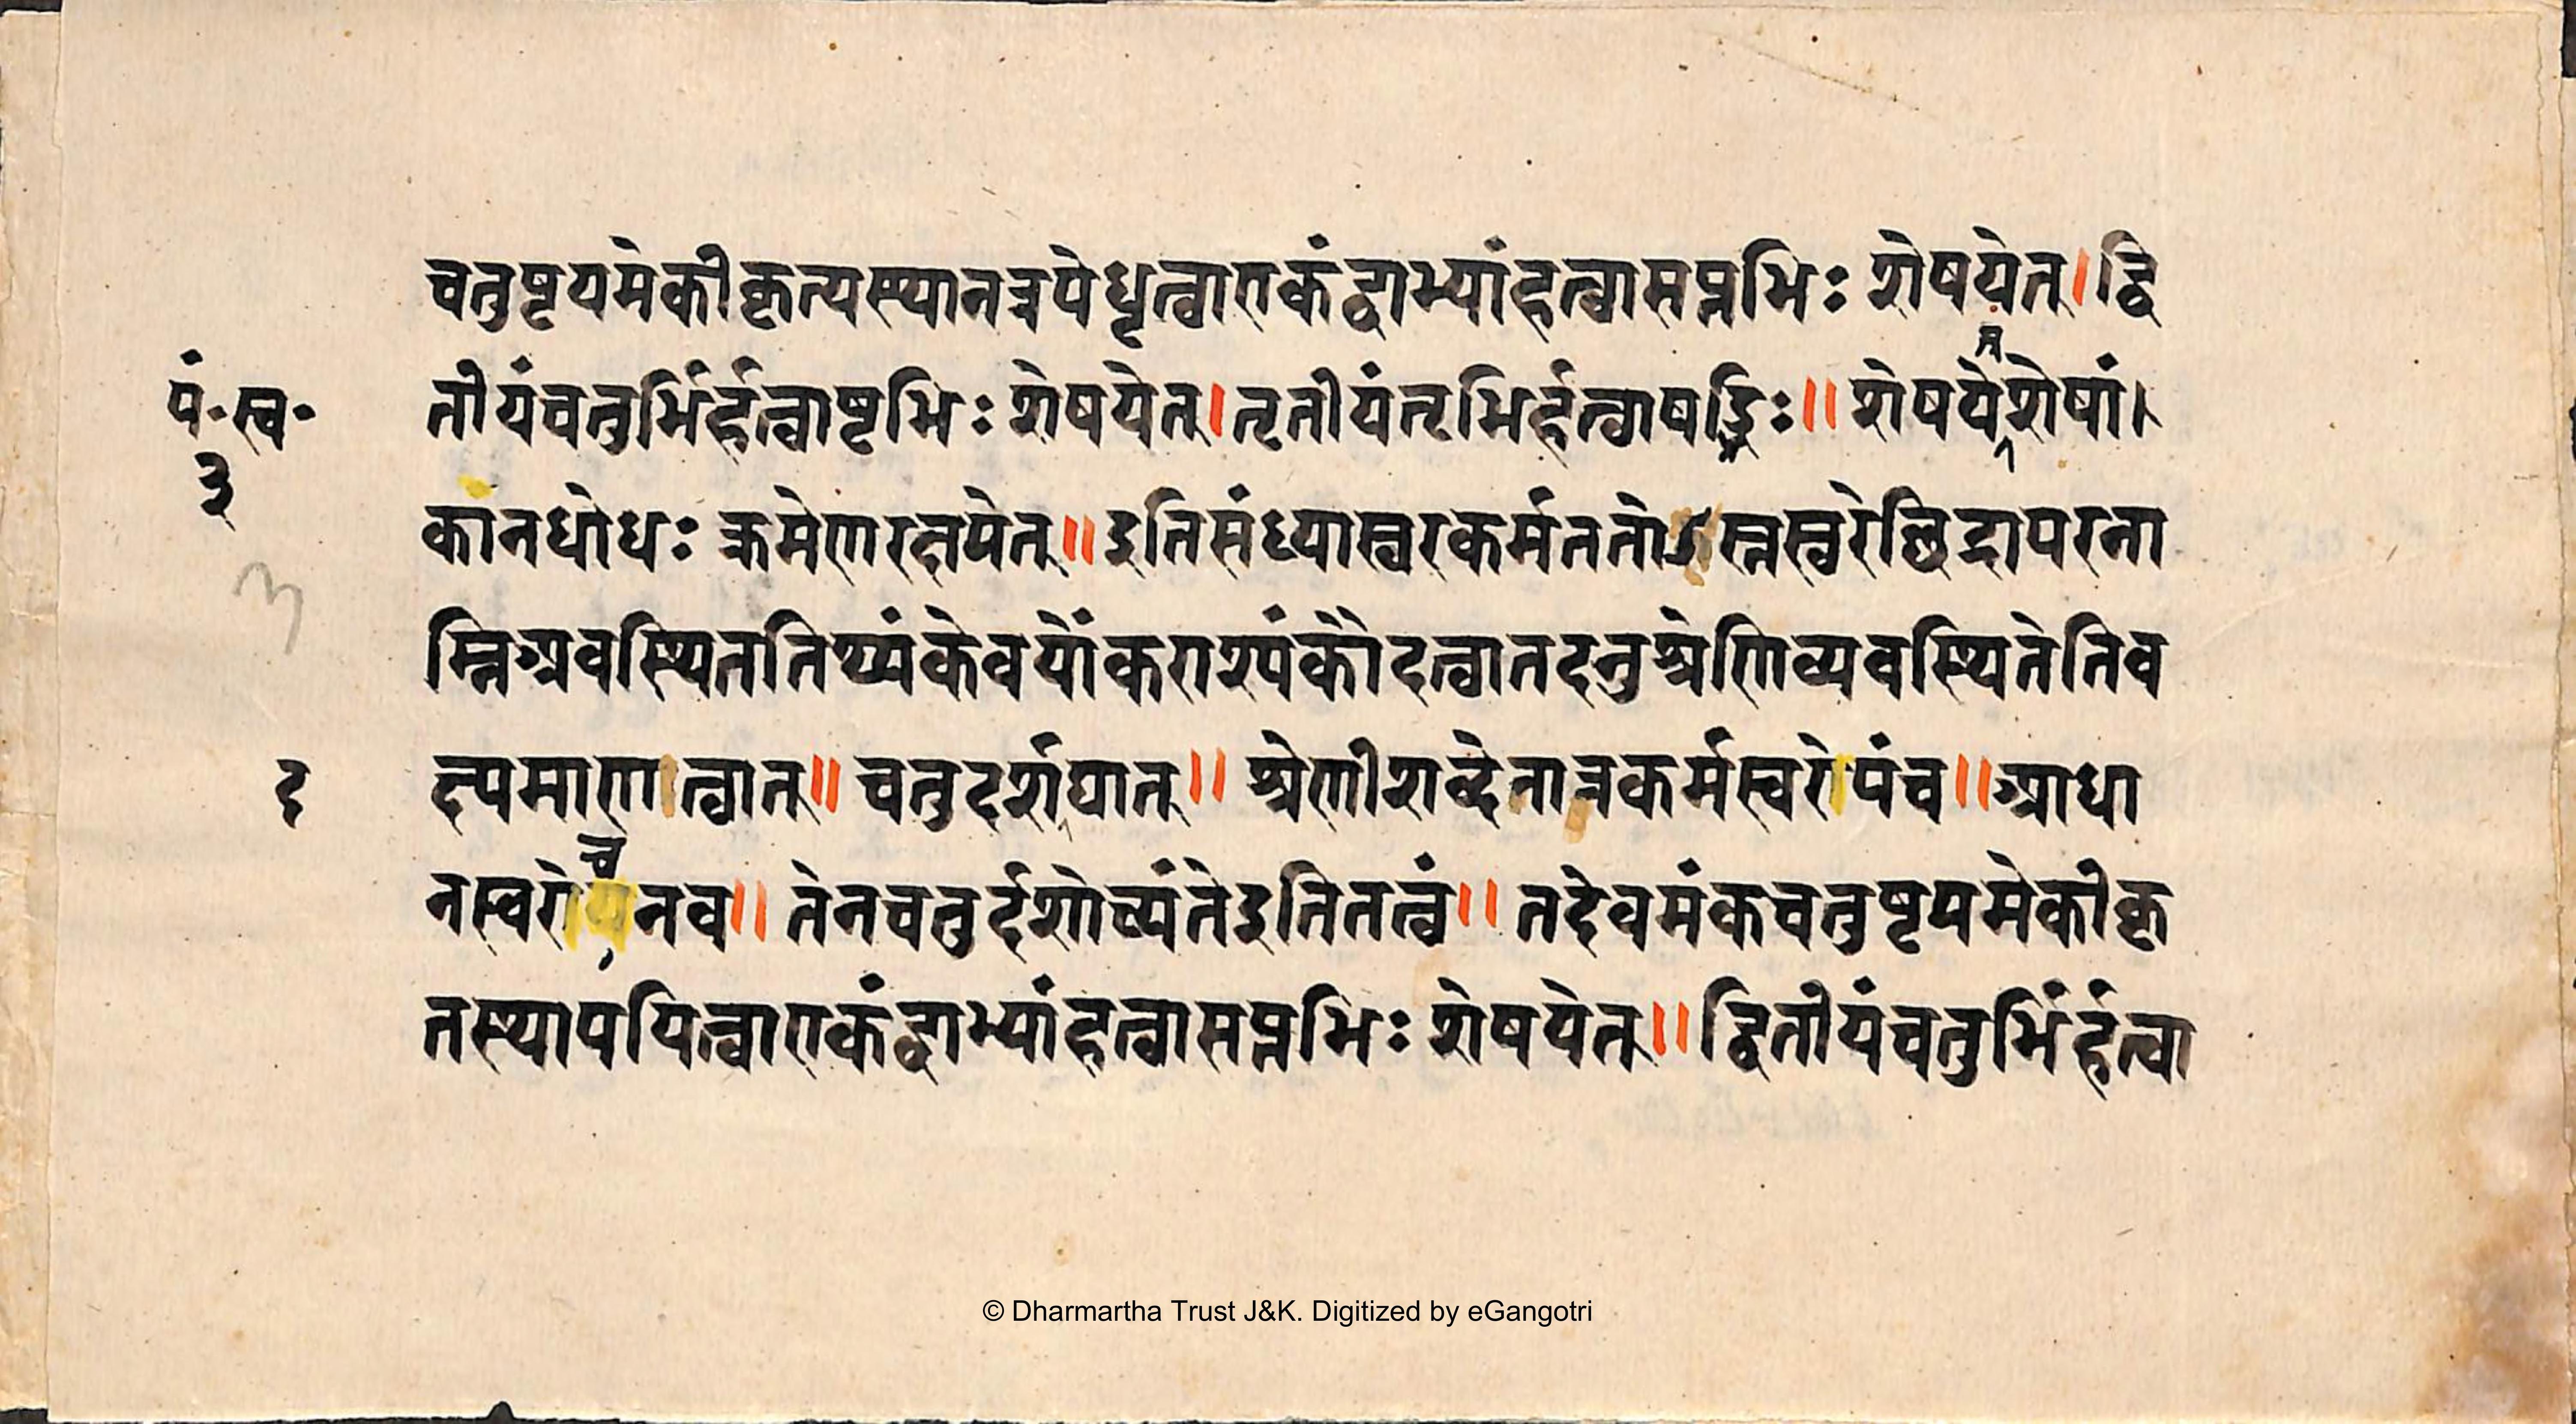 चतुष्टयमेकीकृत्यस्थानत्रयेधृत्वाएकंद्वाभ्यांहत्वासप्तभिः शेषयेत्।द्वि
त्
पं॰स्व॰
तीयंचतुर्भिर्हत्वाष्टभिः शेषयेत्।तृतीयंतृभिर्हत्वाषड्भिः॥ शेषयेशेषां।
३
कानधोधः क्रमेणरक्षयेत्॥इतिसंध्यास्वरकर्मततोऽस्तस्वरेछिद्रापरना
3
म्निअवस्थिततिथ्यंकेवर्योंकराश्यंकौदत्वातदनुश्रेणिव्यवस्थितेतिव
द
क्ष्यमाणत्वात्॥ चतुदर्शघात्॥ श्रेणीशब्देनात्रकर्मस्वरोपंच॥आधा
च
नस्वरोनव॥ तेनचतुर्दशोच्यंतेइतितत्वं॥ तदेवमंकचतुष्टयमेकीकृ
तस्थापयित्वाएकंद्वाभ्यांहत्वासप्तभिः शेषयेत्॥द्वितीयंचतुर्भिर्हत्वा
© Dharmartha Trust J&K. Digitized by eGangotri